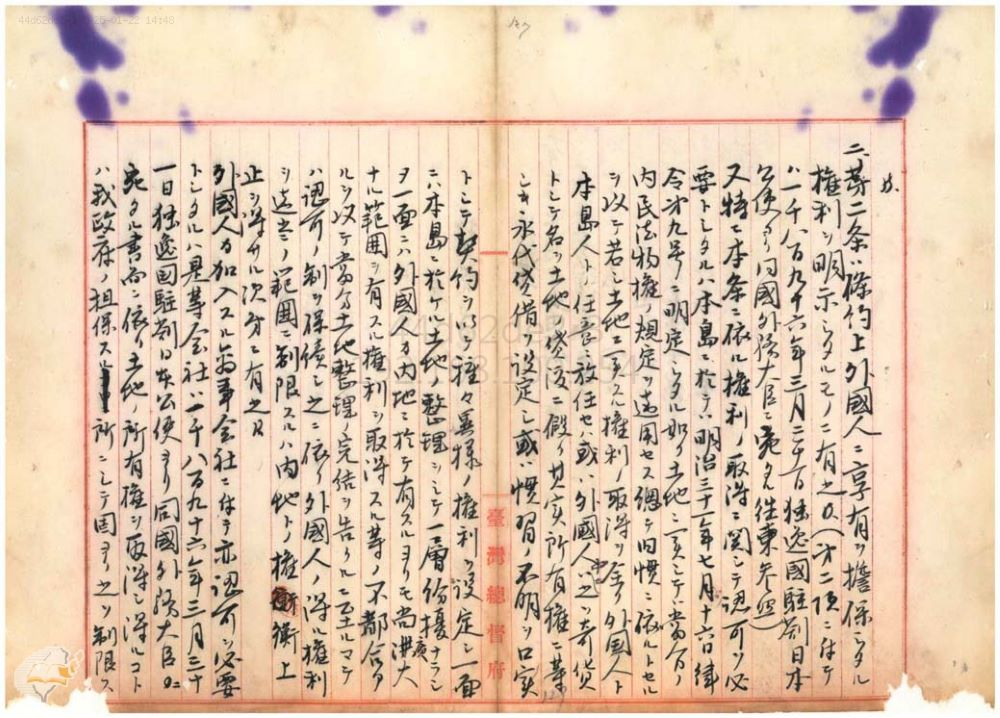 二、第二条ハ條約上外國人ニ享有ヲ擔保シタル
權利ヲ明示シタルモノニ有之候（第二項ニ付テ
ハ一千八百九十六年三月三十一日独逸國駐剳日本
公使ヨリ同國外務大臣ニ宛タル往柬参照）
又特ニ本条ニ依ル權利ノ取得ニ関シテ認可ヲ必
要トシタルハ本島ニ於テハ明治三十一年七月十六日律
令第九号ニ明定シタル如ク土地ニ関シテハ當分ノ
内民法物權ノ規定ヲ適用セス總テ旧慣ニ依ルトセル
ヲ以テ若シ土地ニ関スル權利ノ取得ヲ全ク外國人ト
本島人トノ任意ニ放任セハ或ハ外國人ハ之ヲ奇貨
トシテ名ヲ土地ノ貸渡ニ假リ其実所有權ニ等
シキ永代貸借ヲ設定シ或ハ慣習ノ不明ヲ口実
トシテ契約ヲ以テ種々異様ノ權利ヲ設定シ一面
ニハ本島ニ於ケル土地ノ整理ヲシテ一層紛擾ナラシ
メ一面ニハ外國人カ内地ニ於テ有スルヨリモ尚廣大
ナル範囲ヲ有スル權利ヲ取得スル等ノ不都合アル
ルヲ以テ當分土地整理ノ完結ヲ告クルニ至ルマテ
ハ認可ノ制ヲ保續シ之ニ依リ外國人ノ得ル權利
ヲ適当ノ範囲ニ制限スルハ内地トノ權衡上
止ヲ得サル次第ニ有之候
外國人カ加入スル商事会社ニ付テ亦認可ヲ必要
トシタルハ是等会社ハ一千八百九十六年三月三十
一日独逸國駐剳日本公使ヨリ同國外務大臣ニ
宛タル書面ニ依リ土地ノ所有權ヲ取得シ得ルコト
ハ我政府ノ担保スル所ニシテ固ヨリ之ヲ制限ス
臺灣總督府